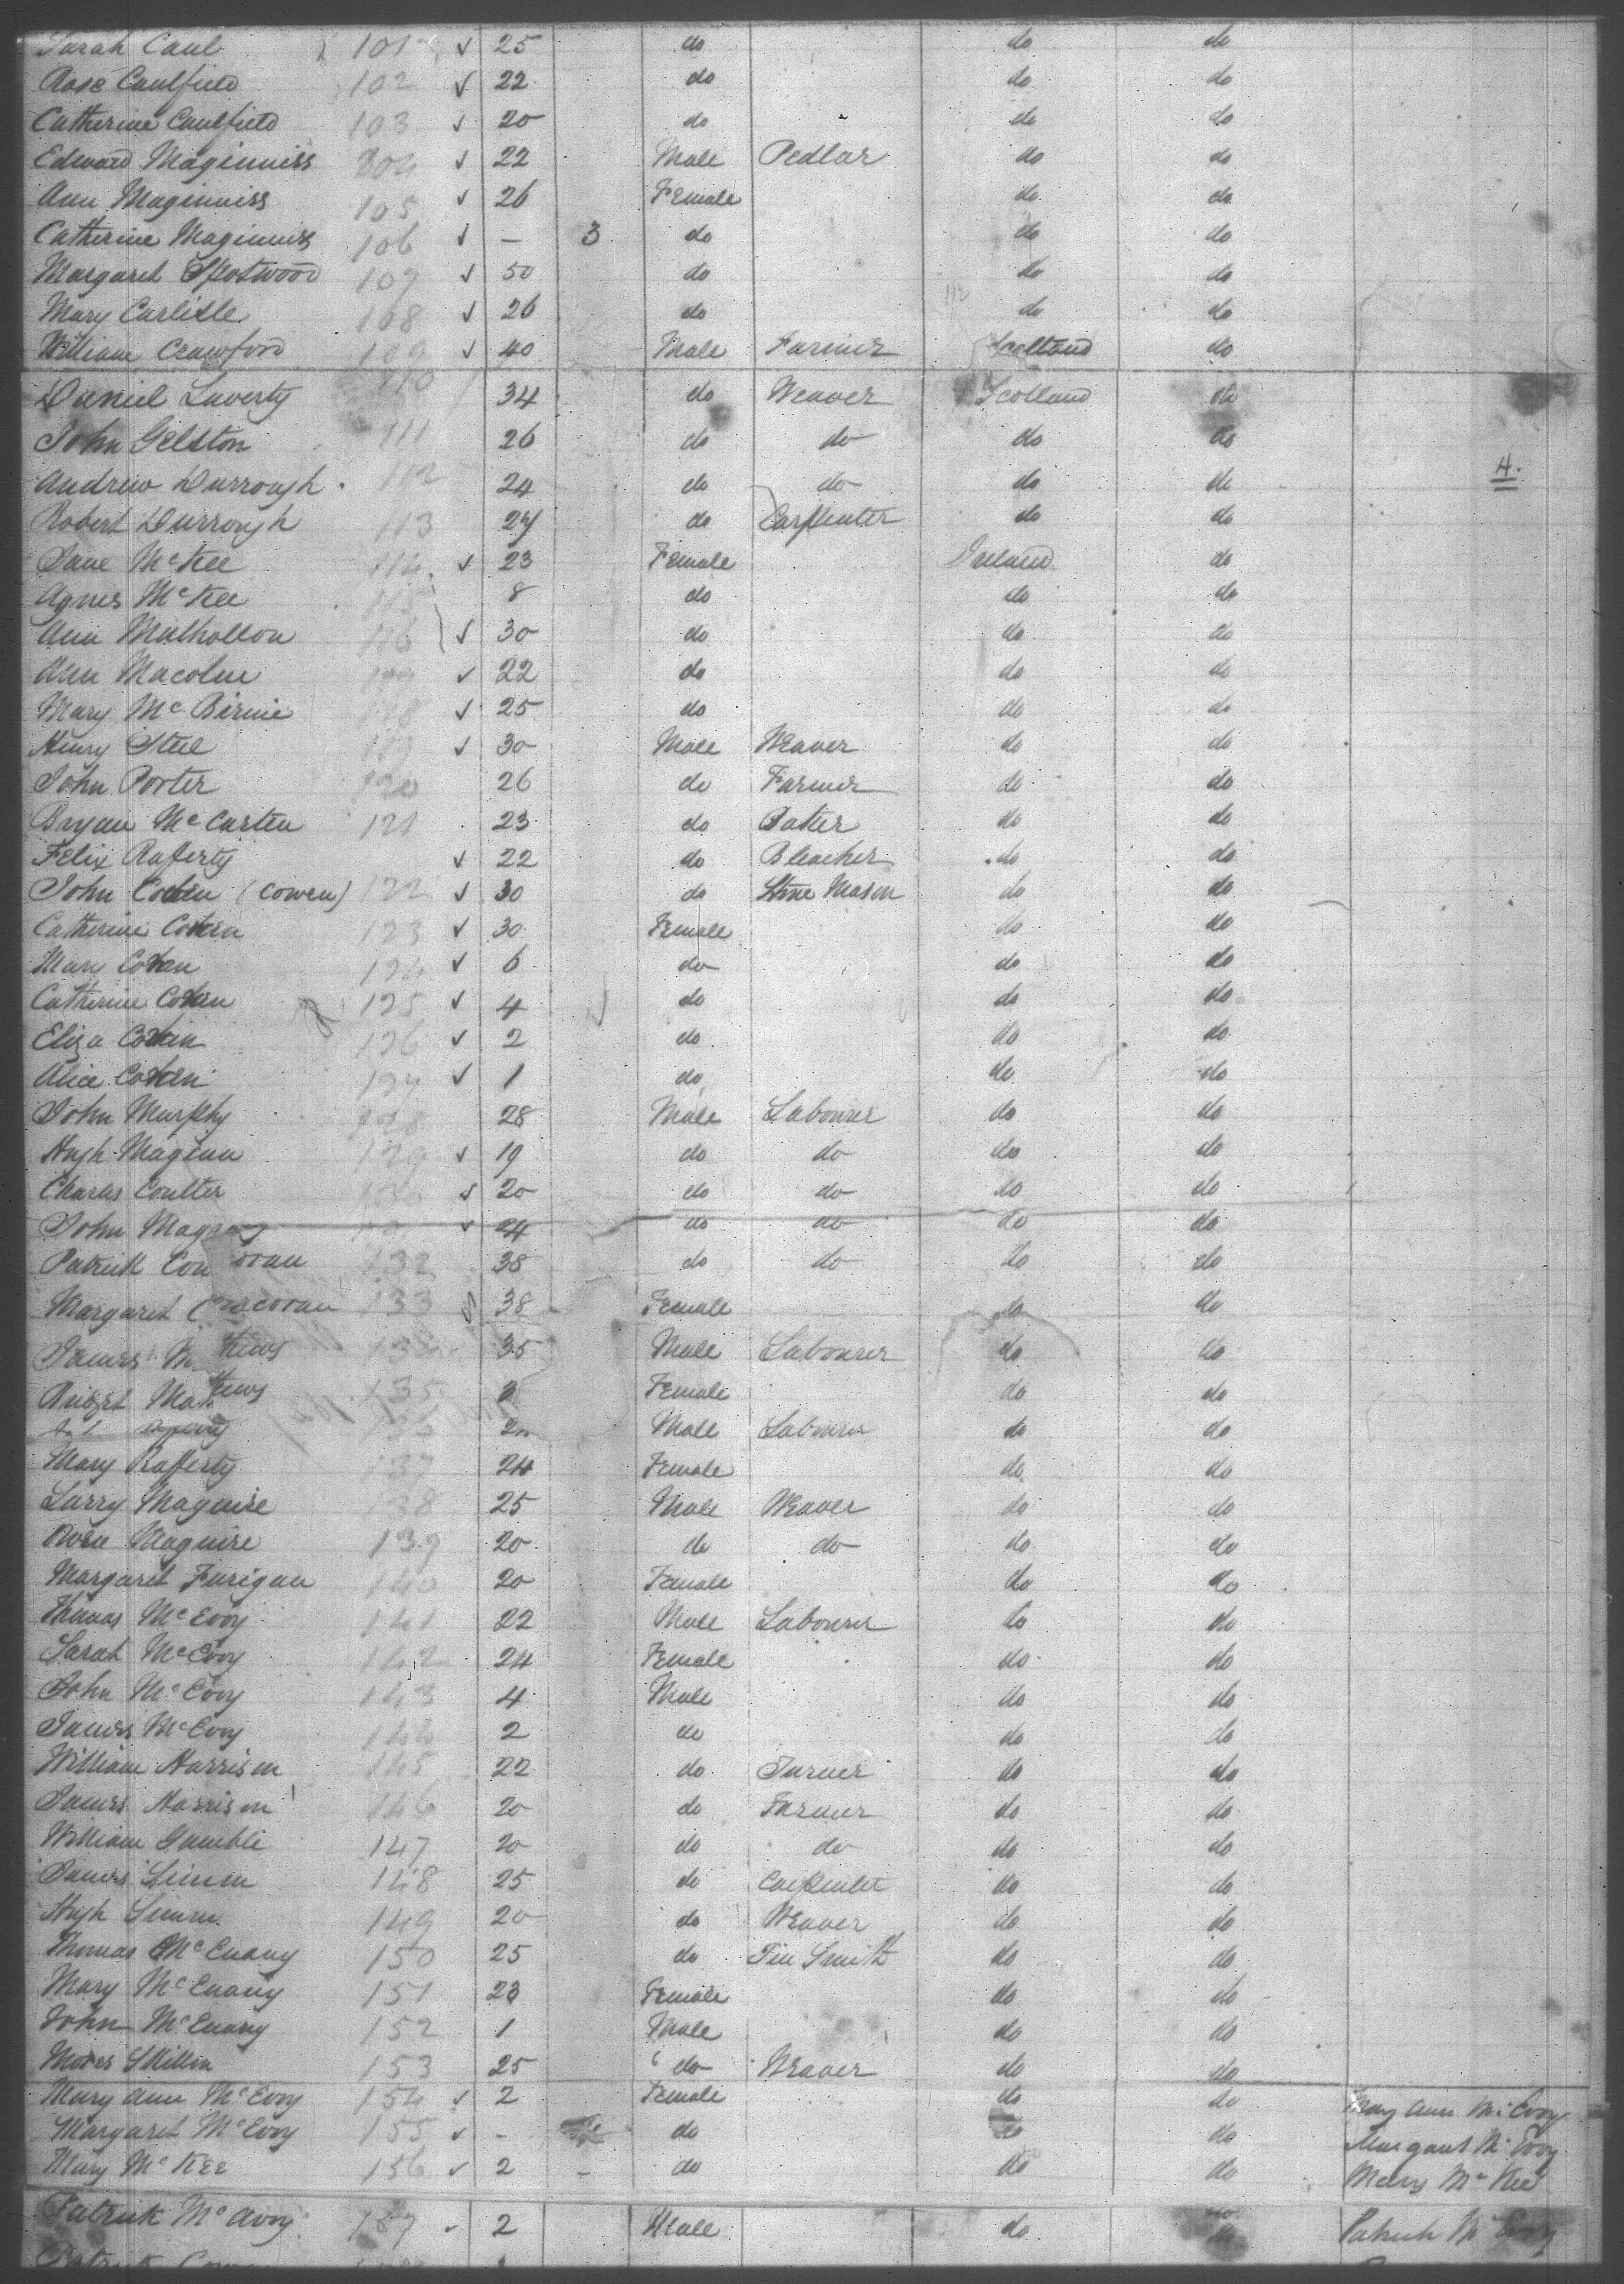 Sarah Caul 101 ✓ 25 do do do
Rose Caulfield 102 ✓ 22 do do do
Catherine Caulfield 103 ✓ 20 do do do
Edward Maginniss 104 ✓ 22 Male Pedlar do do
Ann Maginniss 105 ✓ 26 Female do do
Catherine Maginniss 106 ✓ – 3 do do do
Margaret Spotswood 107 ✓ 50 do do do
Mary Carlisle 108 ✓ 26 do do do
William Crawford 109 ✓ 40 Male Farmer Scotland do
Daniel Laverty 110 34 do Weaver Scotland do
John Gelston 111 26 do do do do
Andrew Durrough 112 24 do do do do 4.
Robert Durrough 113 27 do Carpenter do do
Jane McKee 114 ✓ 23 Female Ireland do
Agnes McKee 115 8 do do do
Ann Mulhollon 116 ✓ 30 do do do
Ann Macolm ✓ 22 do do do
Mary McBirnie 118 ✓ 25 do do do
Henry Steel 119 ✓ 30 Male Weaver do do
John Porter 120 26 do Farmer do do
Bryan McCarten 121 23 do Baker do do
Felix Rafferty ✓ 22 do Bleacher do do
John (Cowen) 122 ✓ 30 do Stone Mason do do
Catherine 123 ✓ 30 Female do do
Mary 124 ✓ 6 do do do
Catherine 125 ✓ 4 do do do
Eliza 126 ✓ 2 do do do
Alice 127 ✓ 1 do do do
John Murphy 128 28 Male Labourer do do
Hugh Maginn 129 ✓ 19 do do do do
Charles Coulter 130 ✓ 20 do do do do
John ✓ 24 do do do do
Patrick 132 38 do do do do
Margaret Corcoran 133 38 Female do do
James 134 35 Male Labourer do do
Bridget 135 Female do do
Male Labourer do do
Mary Rafferty 137 24 Female do do
Larry Maguire 138 25 Male Weaver do do
Maguire 139 20 do do do do
Margaret Furigan 140 20 Female do do
Thomas McEvoy 141 22 Male Labourer do do
Sarah McEvoy 142 24 Female do do
John McEvoy 143 4 Male do do
James McEvoy 144 2 do do do
William Harrison 145 22 do Turner do do
James Harrison 146 20 do Farmer do do
William Gamble 147 20 do do do do
James 148 25 do Carpenter do do
Hugh 149 20 do Weaver do do
Thomas McEnany 150 25 do Tin Smith do do
Mary McEnany 151 23 Female do do
John McEnany 152 1 Male do do
Moses Skillen 153 25 do Weaver do do
Mary Ann McEvoy 154 ✓ 2 Female do do Mary Ann McEvoy
Margaret McEvoy 155 ✓ - do do do Margaret McEvoy
Mary McKee 156 ✓ 2 – do do do Mary McKee
Patrick McAvoy 157 ✓ 2 Male do do Patrick McEvoy
Patrick